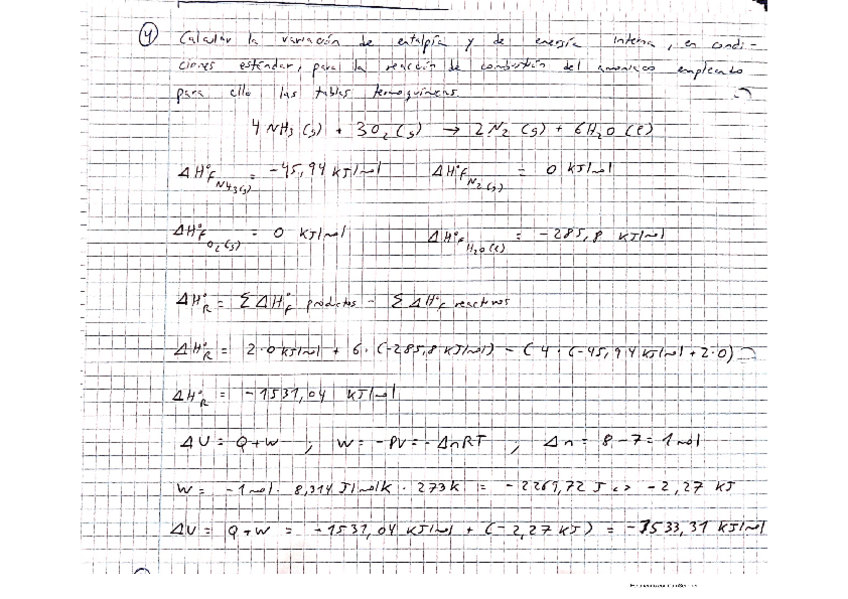 4 Calcular la variación de entalpía y de energía interna, en condi-
ciones estándar, para la reacción de combustión del amoniaco empleando
para ello las tablas termoquímicas.
4 NH3 (g) + 3O2 (g) → 2N2 (g) + 6H2O (l)
ΔH°f NH3(g) = -45,94 kJ/mol ΔH°f N2(g) = 0 kJ/mol
ΔH°f O2(g) = 0 kJ/mol ΔH°f H2O(l) = -285,8 kJ/mol
ΔH°R = Σ ΔH°f productos - Σ ΔH°f reactivos
ΔH°R = 2·0 kJ/mol + 6·(-285,8 kJ/mol) - (4·(-45,94 kJ/mol + 2·0)
ΔH°R = -1531,04 kJ/mol
ΔU = Q+W ; W = -PV = -ΔnRT ; Δn = 8-7 = 1 mol
W = -1 mol · 8,314 J/molK · 273K = -2269,72 J <> -2,27 KJ
ΔU = Q+W = -1531,04 kJ/mol + (-2,27 KJ) = -1533,31 kJ/mol